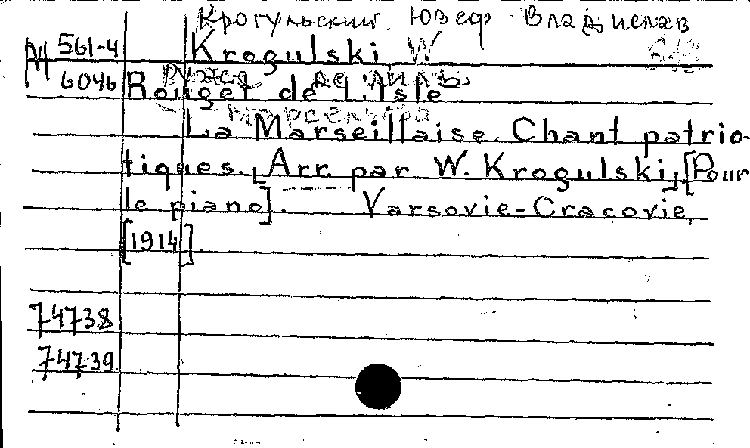 Крогульский Юзеф Владислав
М 561-4 Krogulski W
6046 Rouget de L'Isle
La Marseillaise. Chant patrio-
tiques. [Arr. par W. Krogulski] [Pour
le piano]. Varsovie-Cracovie,
[1914].
74738
74739